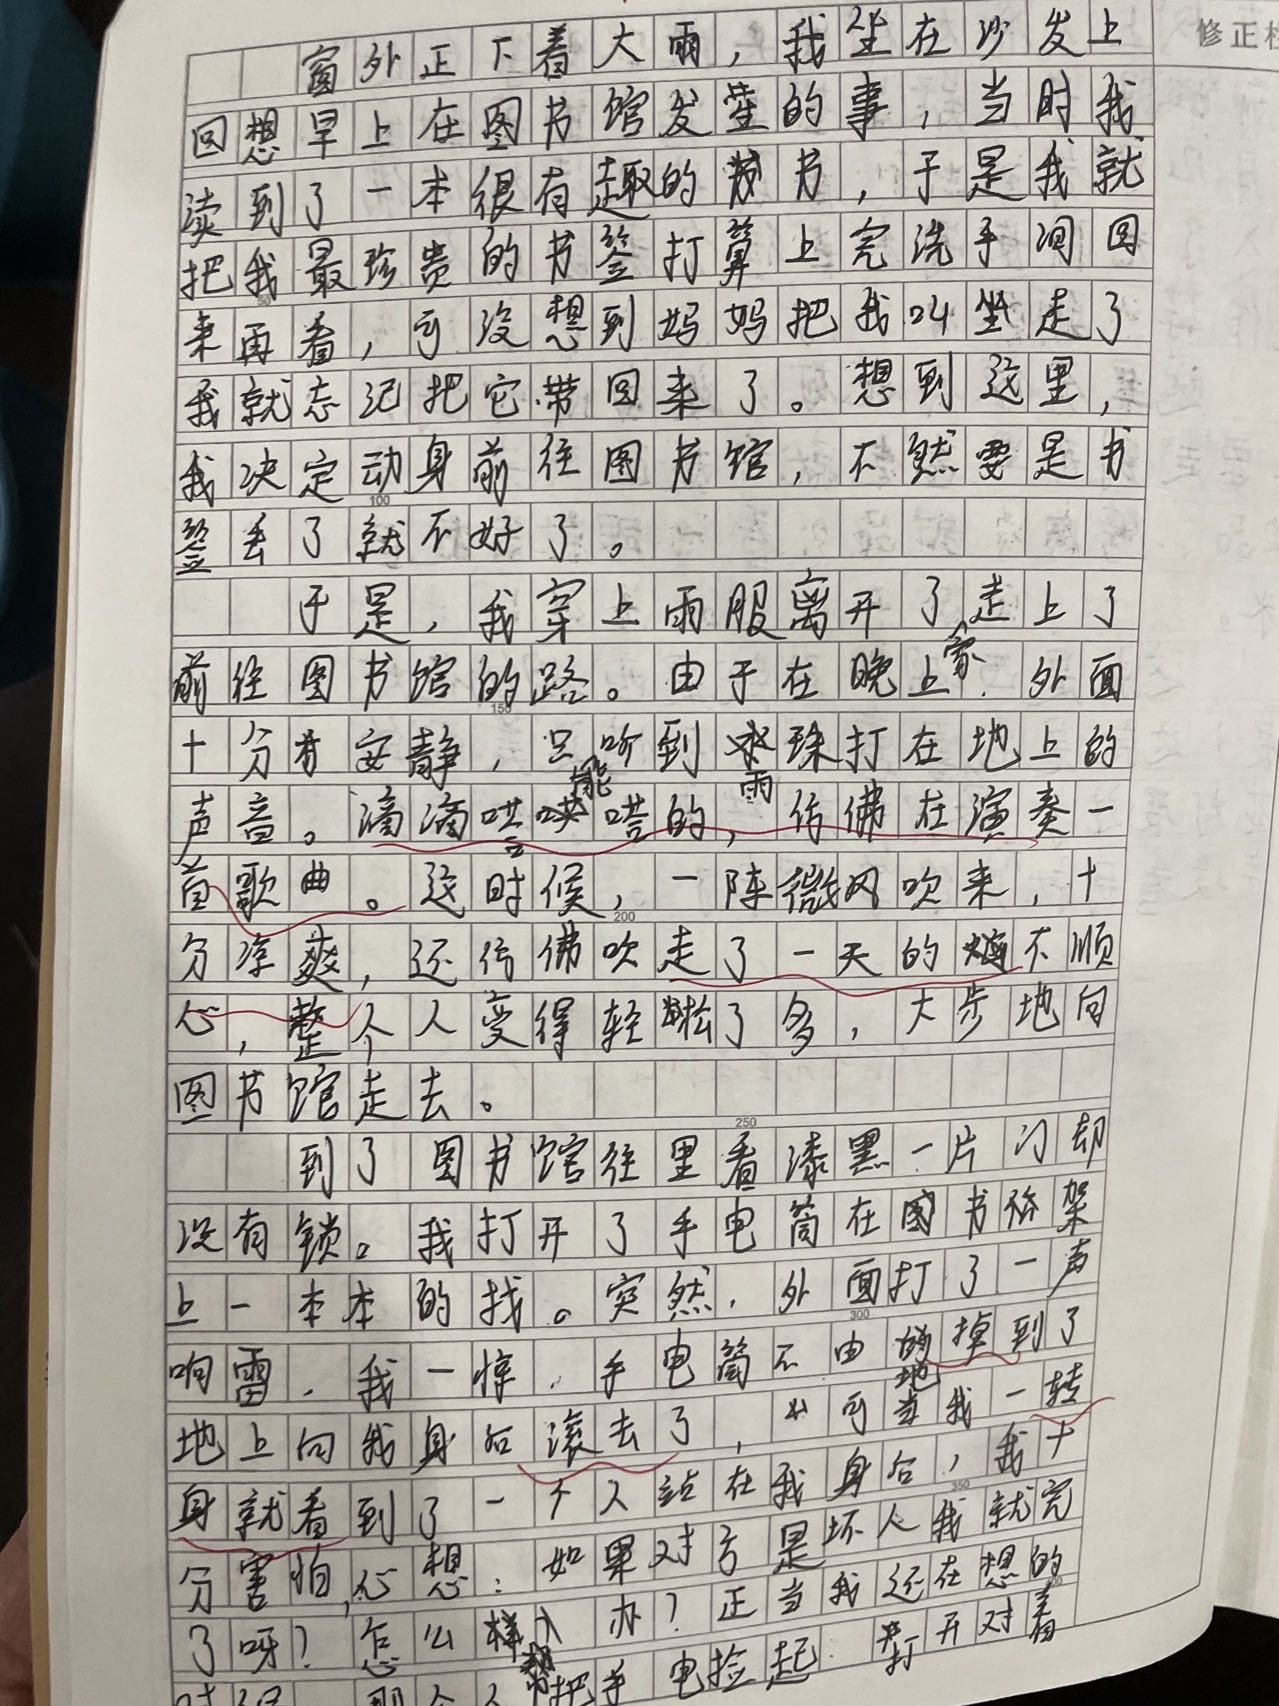 修正栏
窗外正下着大雨，我坐在沙发上
回想早上在图书馆发生的事，当时我
读到了一本很有趣的书，于是我就
把我最珍贵的书签打算上完洗手间回
来再看，可没想到妈妈把我叫走了
我就忘记把它带回来了。想到这里，
我决定动身前往图书馆，不然要是书
签丢了就不好了。
于是，我穿上雨服离开了家走上了
前往图书馆的路。由于在晚上，外面
十分安静，只能听到雨珠打在地上的
声音。滴滴嗒嗒的，仿佛在演奏一
首歌曲。这时候，一阵微风吹来，十
分凉爽，还仿佛吹走了一天的不顺
心，整个人变得轻松了多，大步地向
图书馆走去。
到了图书馆往里看漆黑一片门却
没有锁。我打开了手电筒在图书架
上一本本的找。突然，外面打了一声
响雷，我一惊，手电筒不由地掉到了
地上向我身后滚去了，可当我一转
身就看到了一个人站在我身后，我十
分害怕，心想：如果对方是坏人我就完
了呀？怎么办？正当我还在想的
时候，那个人帮把手电捡起 打开对着
50
100
150
200
250
300
350